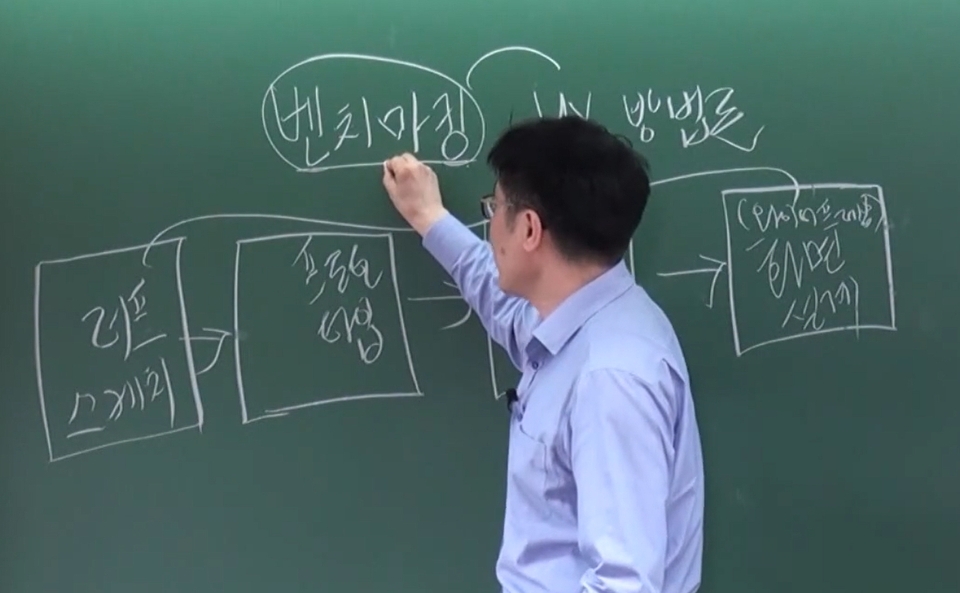 벤치마킹
방법론
러프
스케치
프로토
타입
(와이어프레임)
화면
설계